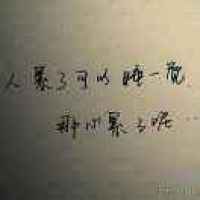 人累了可以睡一觉,
那心累了呢…